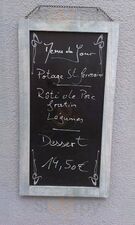 Menu du Jour
Potage St Germain
Rôti de Porc
gratin
Légumes
Dessert
14,50€